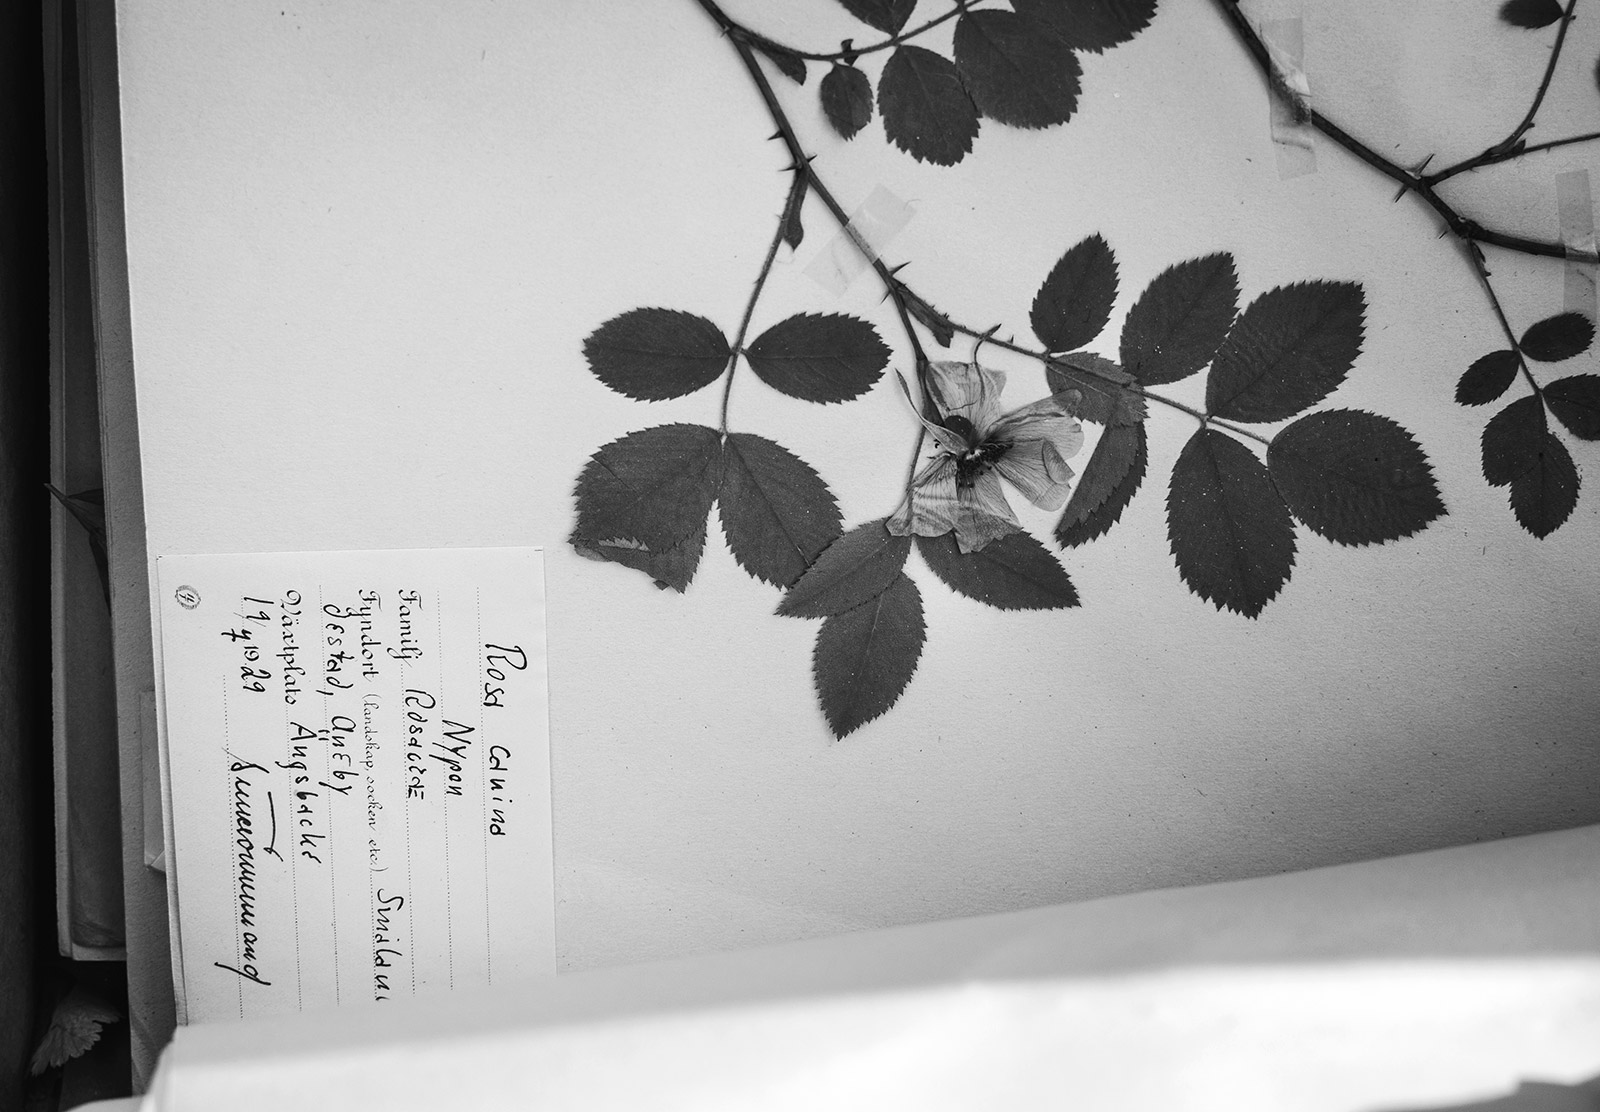 Rosa canina
Nypon
Familj Rosaceae
Fyndort (landskap, socken etc.) Småland
Gestad, Äneby
Växtplats Ängsbacke
19/7 1929